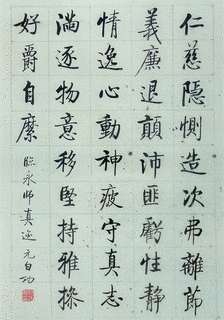 仁慈隱惻造次弗離節
義廉退顛沛匪虧性靜
情逸心動神疲守真志
滿逐物意移堅持雅操
好爵自縻
臨永師真迹元白功